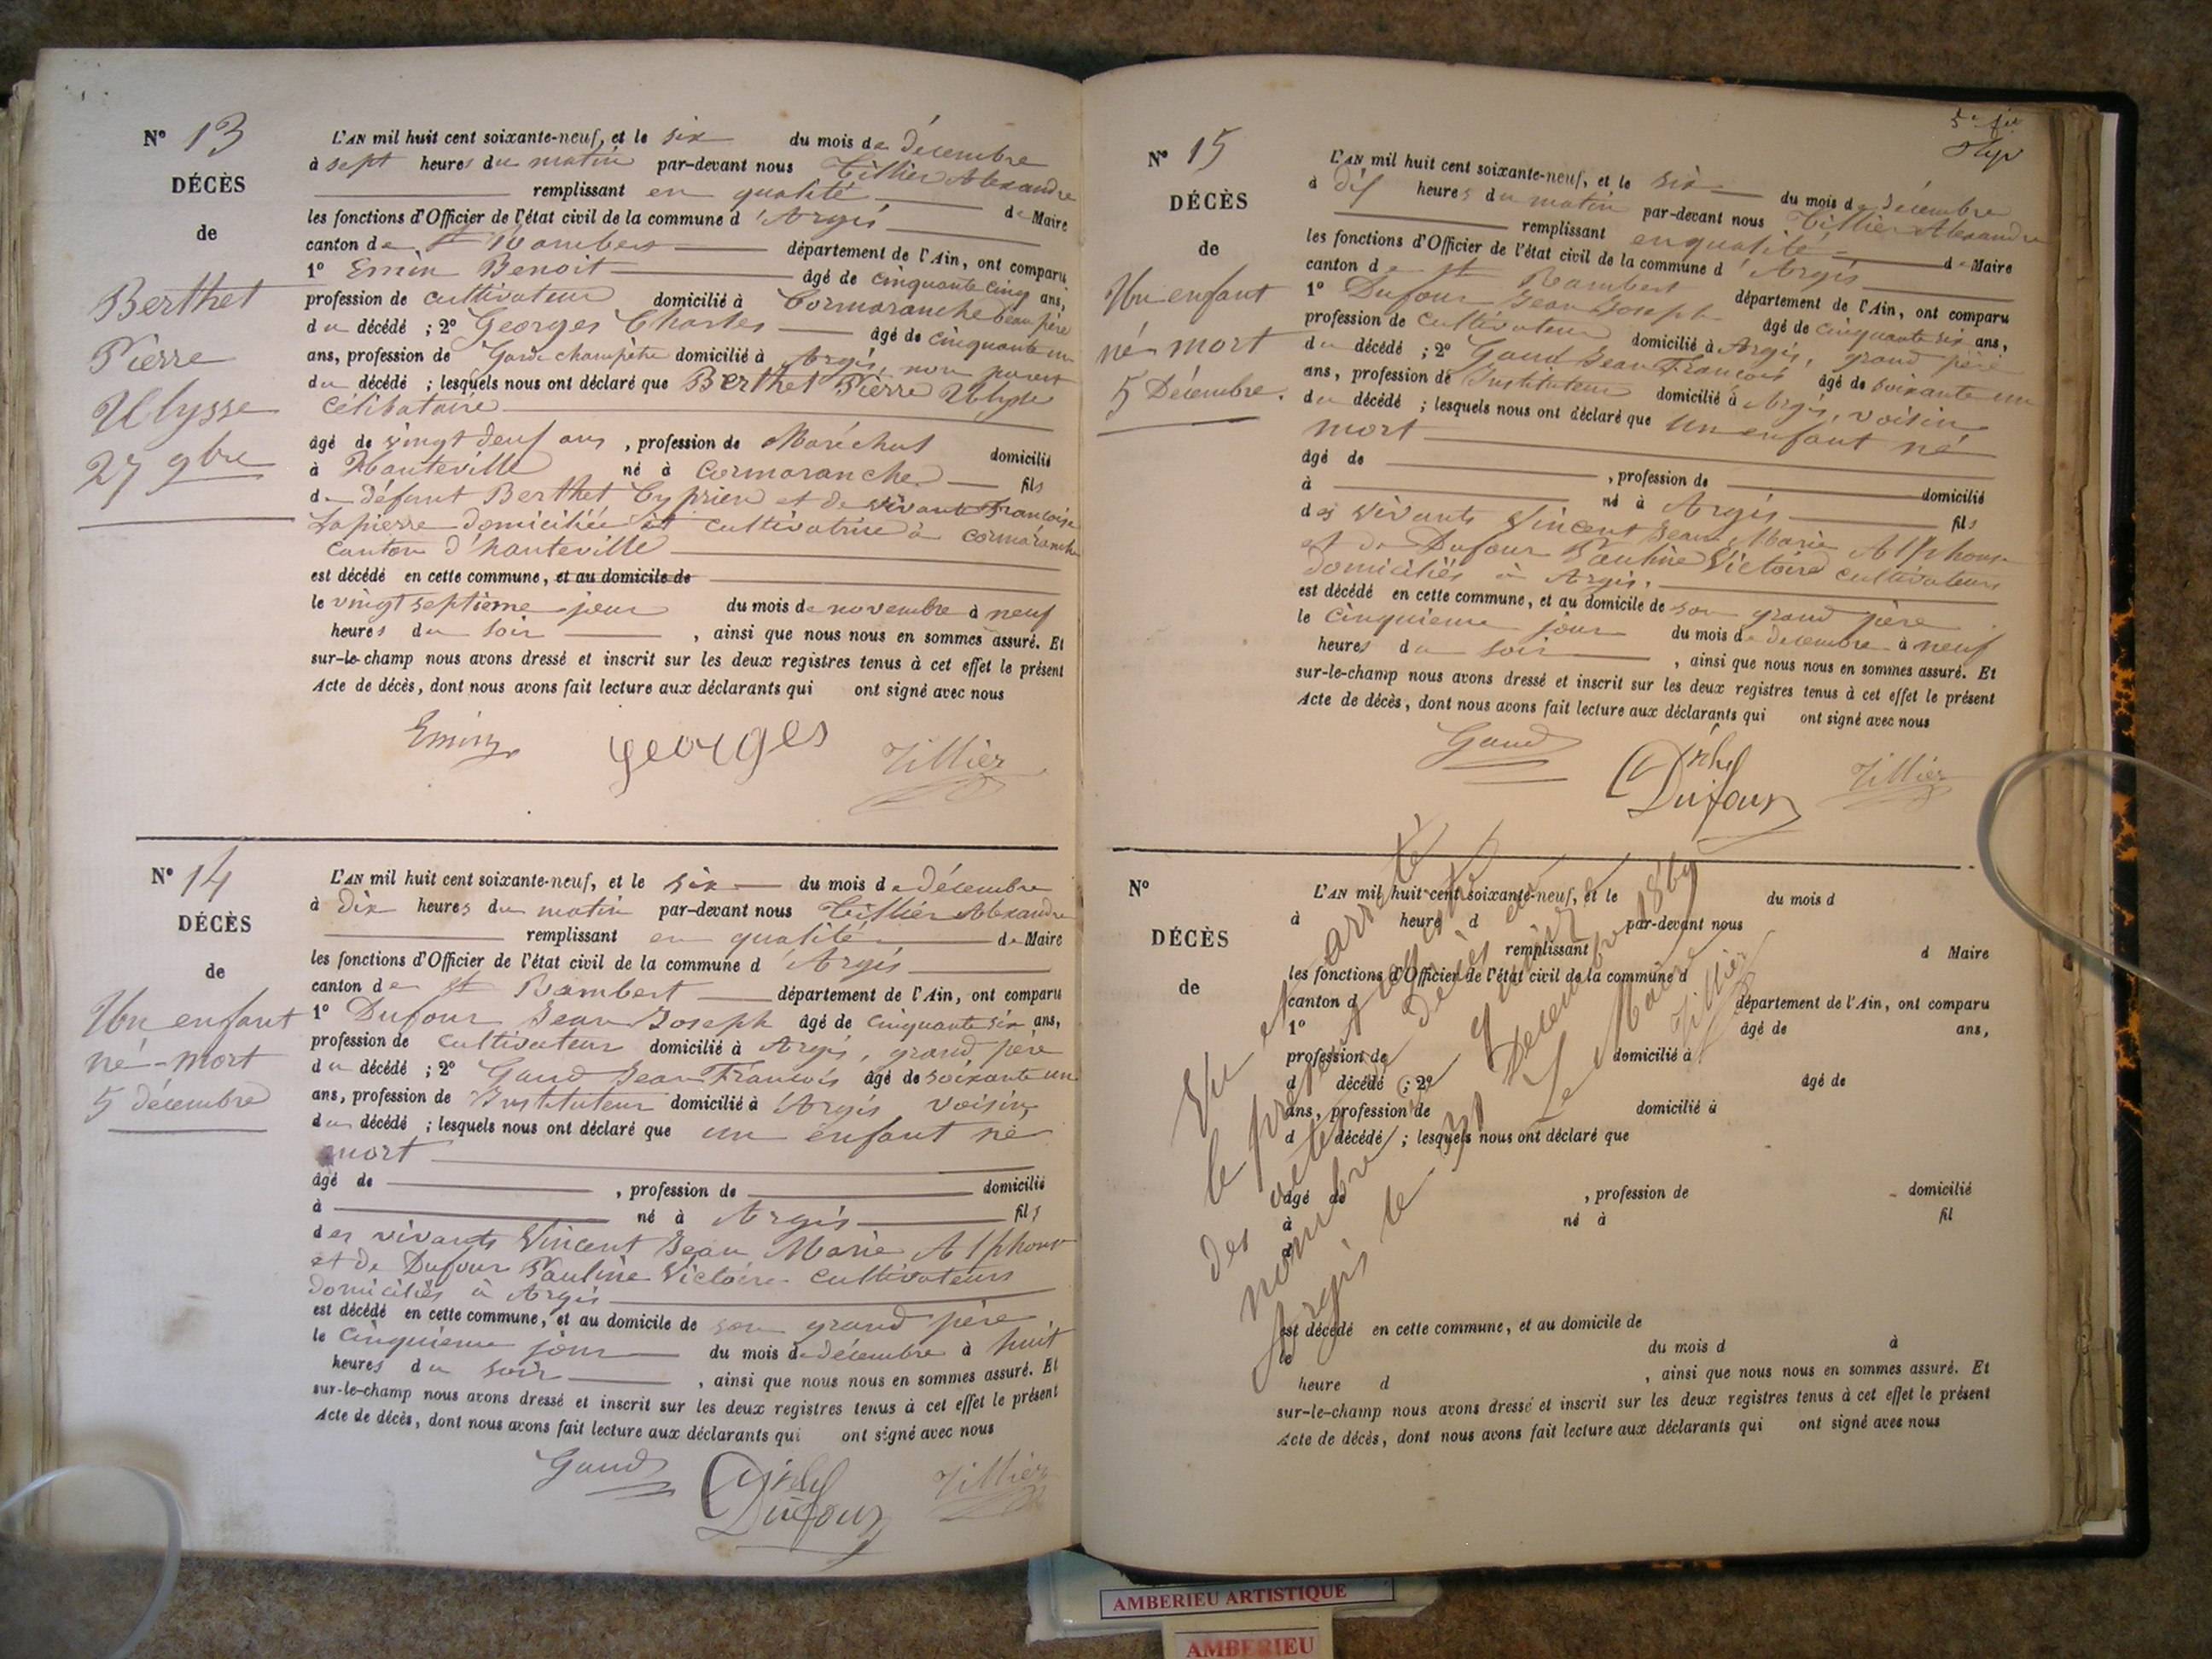 N° 13
DÉCÈS
de
Berthet
Pierre
Ulysse
27 9bre
L'AN mil huit cent soixante-neuf, et le six du mois de décembre
à sept heures du matin par-devant nous Tillier Alexandre
remplissant en qualité de Maire
les fonctions d'Officier de l'état civil de la commune d'Argis
canton de St Rambert département de l'Ain, ont comparu
1° Emin Benoit âgé de cinquante cinq ans,
profession de cultivateur domicilié à Cormaranche beau père
du décédé ; 2° Georges Charles âgé de cinquante un
ans, profession de Garde champêtre domicilié à Argis, non parent
du décédé ; lesquels nous ont déclaré que Berthet Pierre Ulysse
célibataire
âgé de vingt deux ans, profession de Maréchal domicilié
à Hauteville né à Cormaranche fils
de défunt Berthet Cyprien et de vivante Françoise
Lapierre domiciliée et cultivatrice à Cormaranche
canton d'hauteville
est décédé en cette commune, et au domicile de
le vingt septième jour du mois de novembre à neuf
heures du soir, ainsi que nous nous en sommes assuré. Et
sur-le-champ nous avons dressé et inscrit sur les deux registres tenus à cet effet le présent
Acte de décès, dont nous avons fait lecture aux déclarants qui ont signé avec nous
Emin Georges Tillier
N° 14
DÉCÈS
de
Un enfant
né-mort
5 décembre
L'AN mil huit cent soixante-neuf, et le six du mois de décembre
à dix heures du matin par-devant nous Tillier Alexandre
remplissant en qualité de Maire
les fonctions d'Officier de l'état civil de la commune d'Argis
canton de St Rambert département de l'Ain, ont comparu
1° Dufour Jean Joseph âgé de cinquante six ans,
profession de cultivateur domicilié à Argis, grand père
du décédé ; 2° Gaud Jean François âgé de soixante un
ans, profession de Instituteur domicilié à Argis voisin
du décédé ; lesquels nous ont déclaré que un enfant né
mort
âgé de , profession de domicilié
à né à Argis fils
des vivants Vincent Jean Marie Alphonse
et de Dufour Pauline Victoire cultivateurs
domiciliés à Argis
est décédé en cette commune, et au domicile de son grand père
le cinquieme jour du mois de décembre à huit
heures du soir, ainsi que nous nous en sommes assuré. Et
sur-le-champ nous avons dressé et inscrit sur les deux registres tenus à cet effet le présent
Acte de décès, dont nous avons fait lecture aux déclarants qui ont signé avec nous
Gaud Dufour Tillier
N° 15
DÉCÈS
de
Un enfant
né mort
5 Décembre.
L'AN mil huit cent soixante-neuf, et le six du mois de décembre
à dix heures du matin par-devant nous Tillier Alexandre
remplissant en qualité de Maire
les fonctions d'Officier de l'état civil de la commune d'Argis
canton de St Rambert département de l'Ain, ont comparu
1° Dufour Jean Joseph âgé de cinquante six ans,
profession de Cultivateur domicilié à Argis, grand père
du décédé ; 2° Gaud Jean François âgé de soixante un
ans, profession de Instituteur domicilié à Argis, voisin
du décédé ; lesquels nous ont déclaré que Un enfant né
mort
âgé de , profession de domicilié
à né à Argis fils
des vivants Vincent Jean Marie Alphonse
et de Dufour Pauline Victoire cultivateurs
domiciliés à Argis.
est décédé en cette commune, et au domicile de son grand père
le cinquieme jour du mois de décembre à neuf
heures du soir, ainsi que nous nous en sommes assuré. Et
sur-le-champ nous avons dressé et inscrit sur les deux registres tenus à cet effet le présent
Acte de décès, dont nous avons fait lecture aux déclarants qui ont signé avec nous
Gaud Dufour Tillier
N°
DÉCÈS
de
L'AN mil huit cent soixante-neuf, et le du mois d
à heure d par-devant nous
remplissant d Maire
les fonctions d'Officier de l'état civil de la commune d
canton d département de l'Ain, ont comparu
1° âgé de ans,
profession de domicilié à
d décédé ; 2° âgé de
ans, profession de domicilié à
d décédé ; lesquels nous ont déclaré que
âgé de , profession de domicilié
à né à fil
d
est décédé en cette commune, et au domicile de
le du mois d à
heure d , ainsi que nous nous en sommes assuré. Et
sur-le-champ nous avons dressé et inscrit sur les deux registres tenus à cet effet le présent
Acte de décès, dont nous avons fait lecture aux déclarants qui ont signé avec nous
Vu et arrêté
le présent registre
des actes de décès au
nombre de quinze
Argis le 31 Décembre 1869
Le Maire
Tillier
AMBERIEU ARTISTIQUE
AMBERIEU